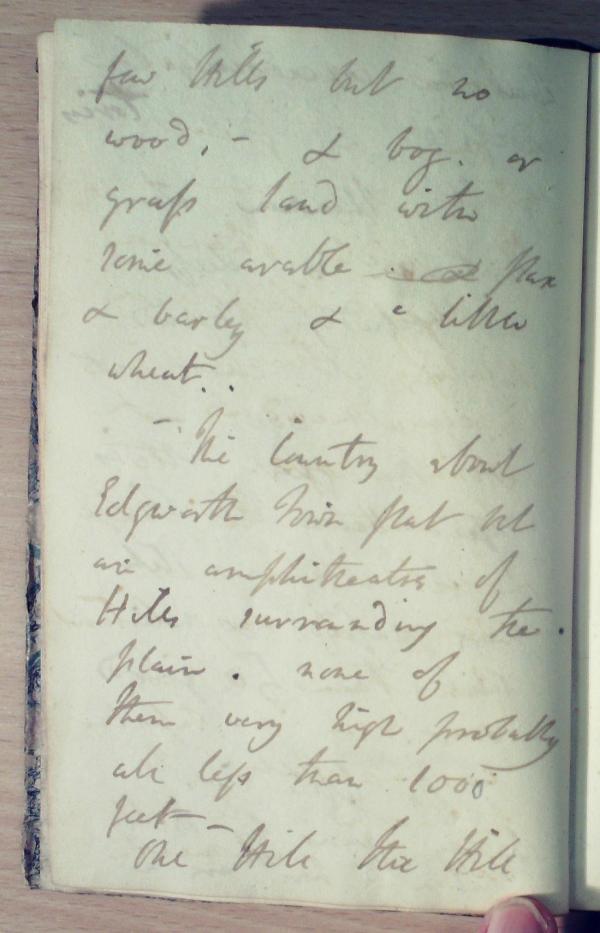 few Hills but no
wood, - & bog. or
grass land with
some arable flax
& barley & a little
wheat..
- The Country about
Edgworth Town flat but
an amphitheatre of
Hills surrounding the
plain. none of
them very high probably
all less than 1000
feet -
One Hill the Hill